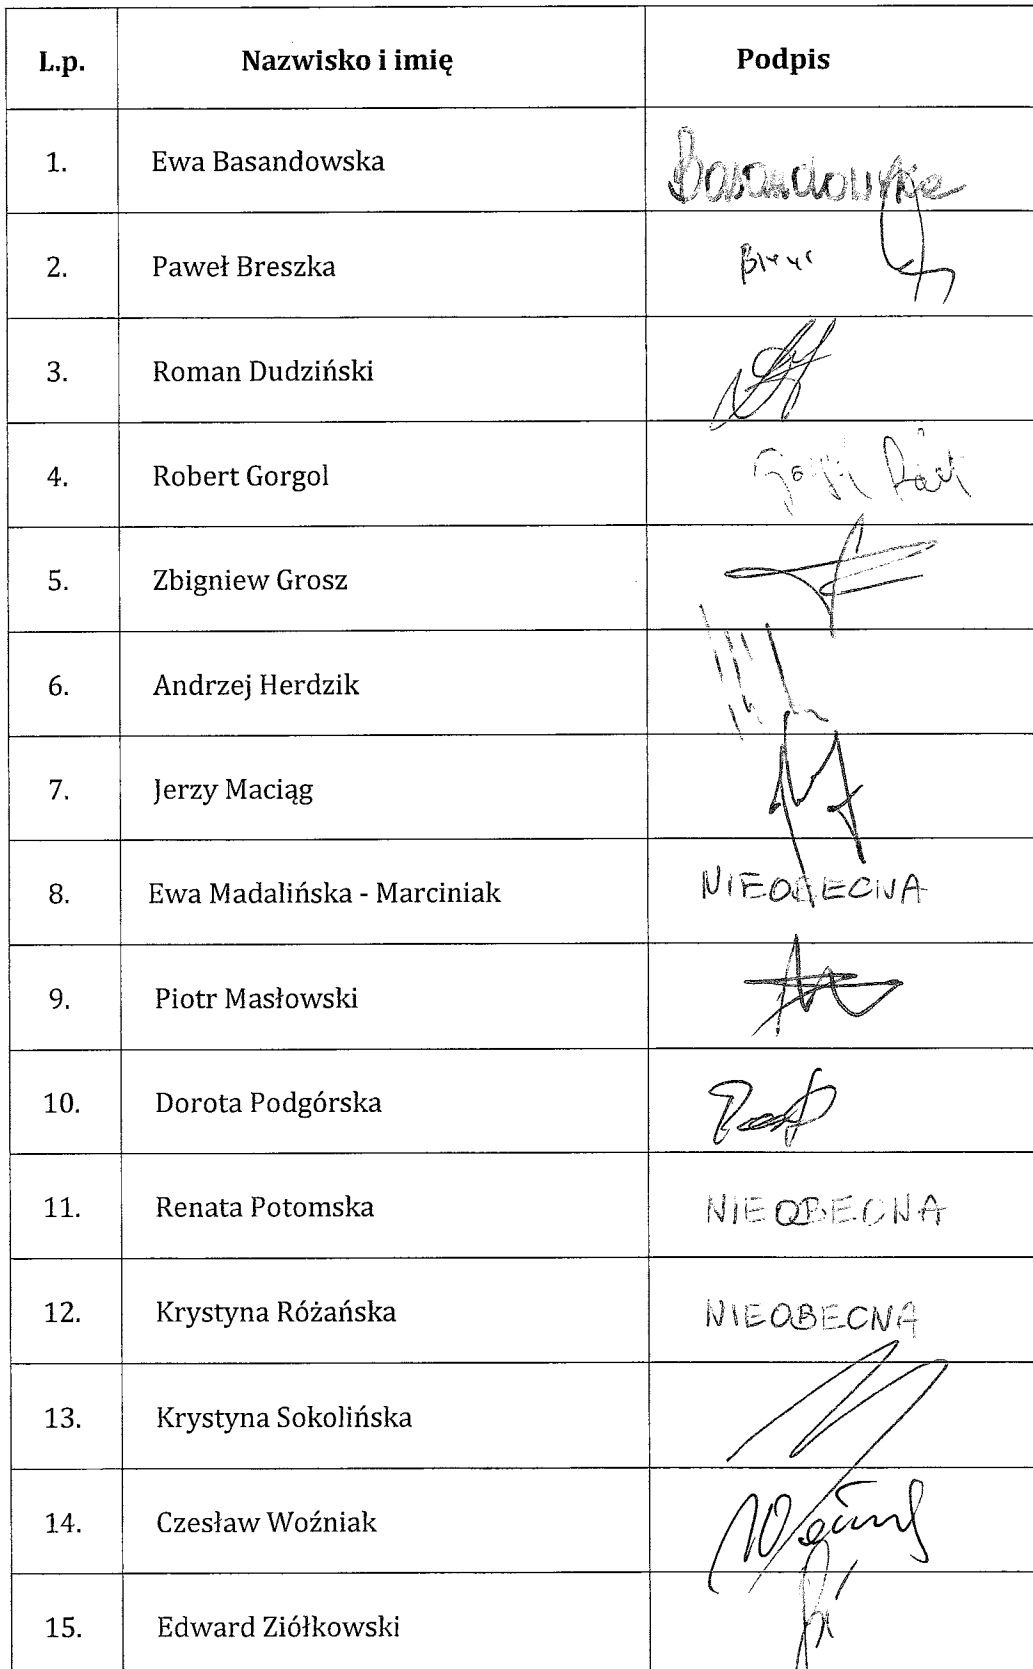 L.p. Nazwisko i imię Podpis
1. Ewa Basandowska Basandowska
2. Paweł Breszka
3. Roman Dudziński
4. Robert Gorgol
5. Zbigniew Grosz
6. Andrzej Herdzik
7. Jerzy Maciąg
8. Ewa Madalińska - Marciniak NIEOBECNA
9. Piotr Masłowski
10. Dorota Podgórska
11. Renata Potomska NIEOBECNA
12. Krystyna Różańska NIEOBECNA
13. Krystyna Sokolińska
14. Czesław Woźniak
15. Edward Ziółkowski